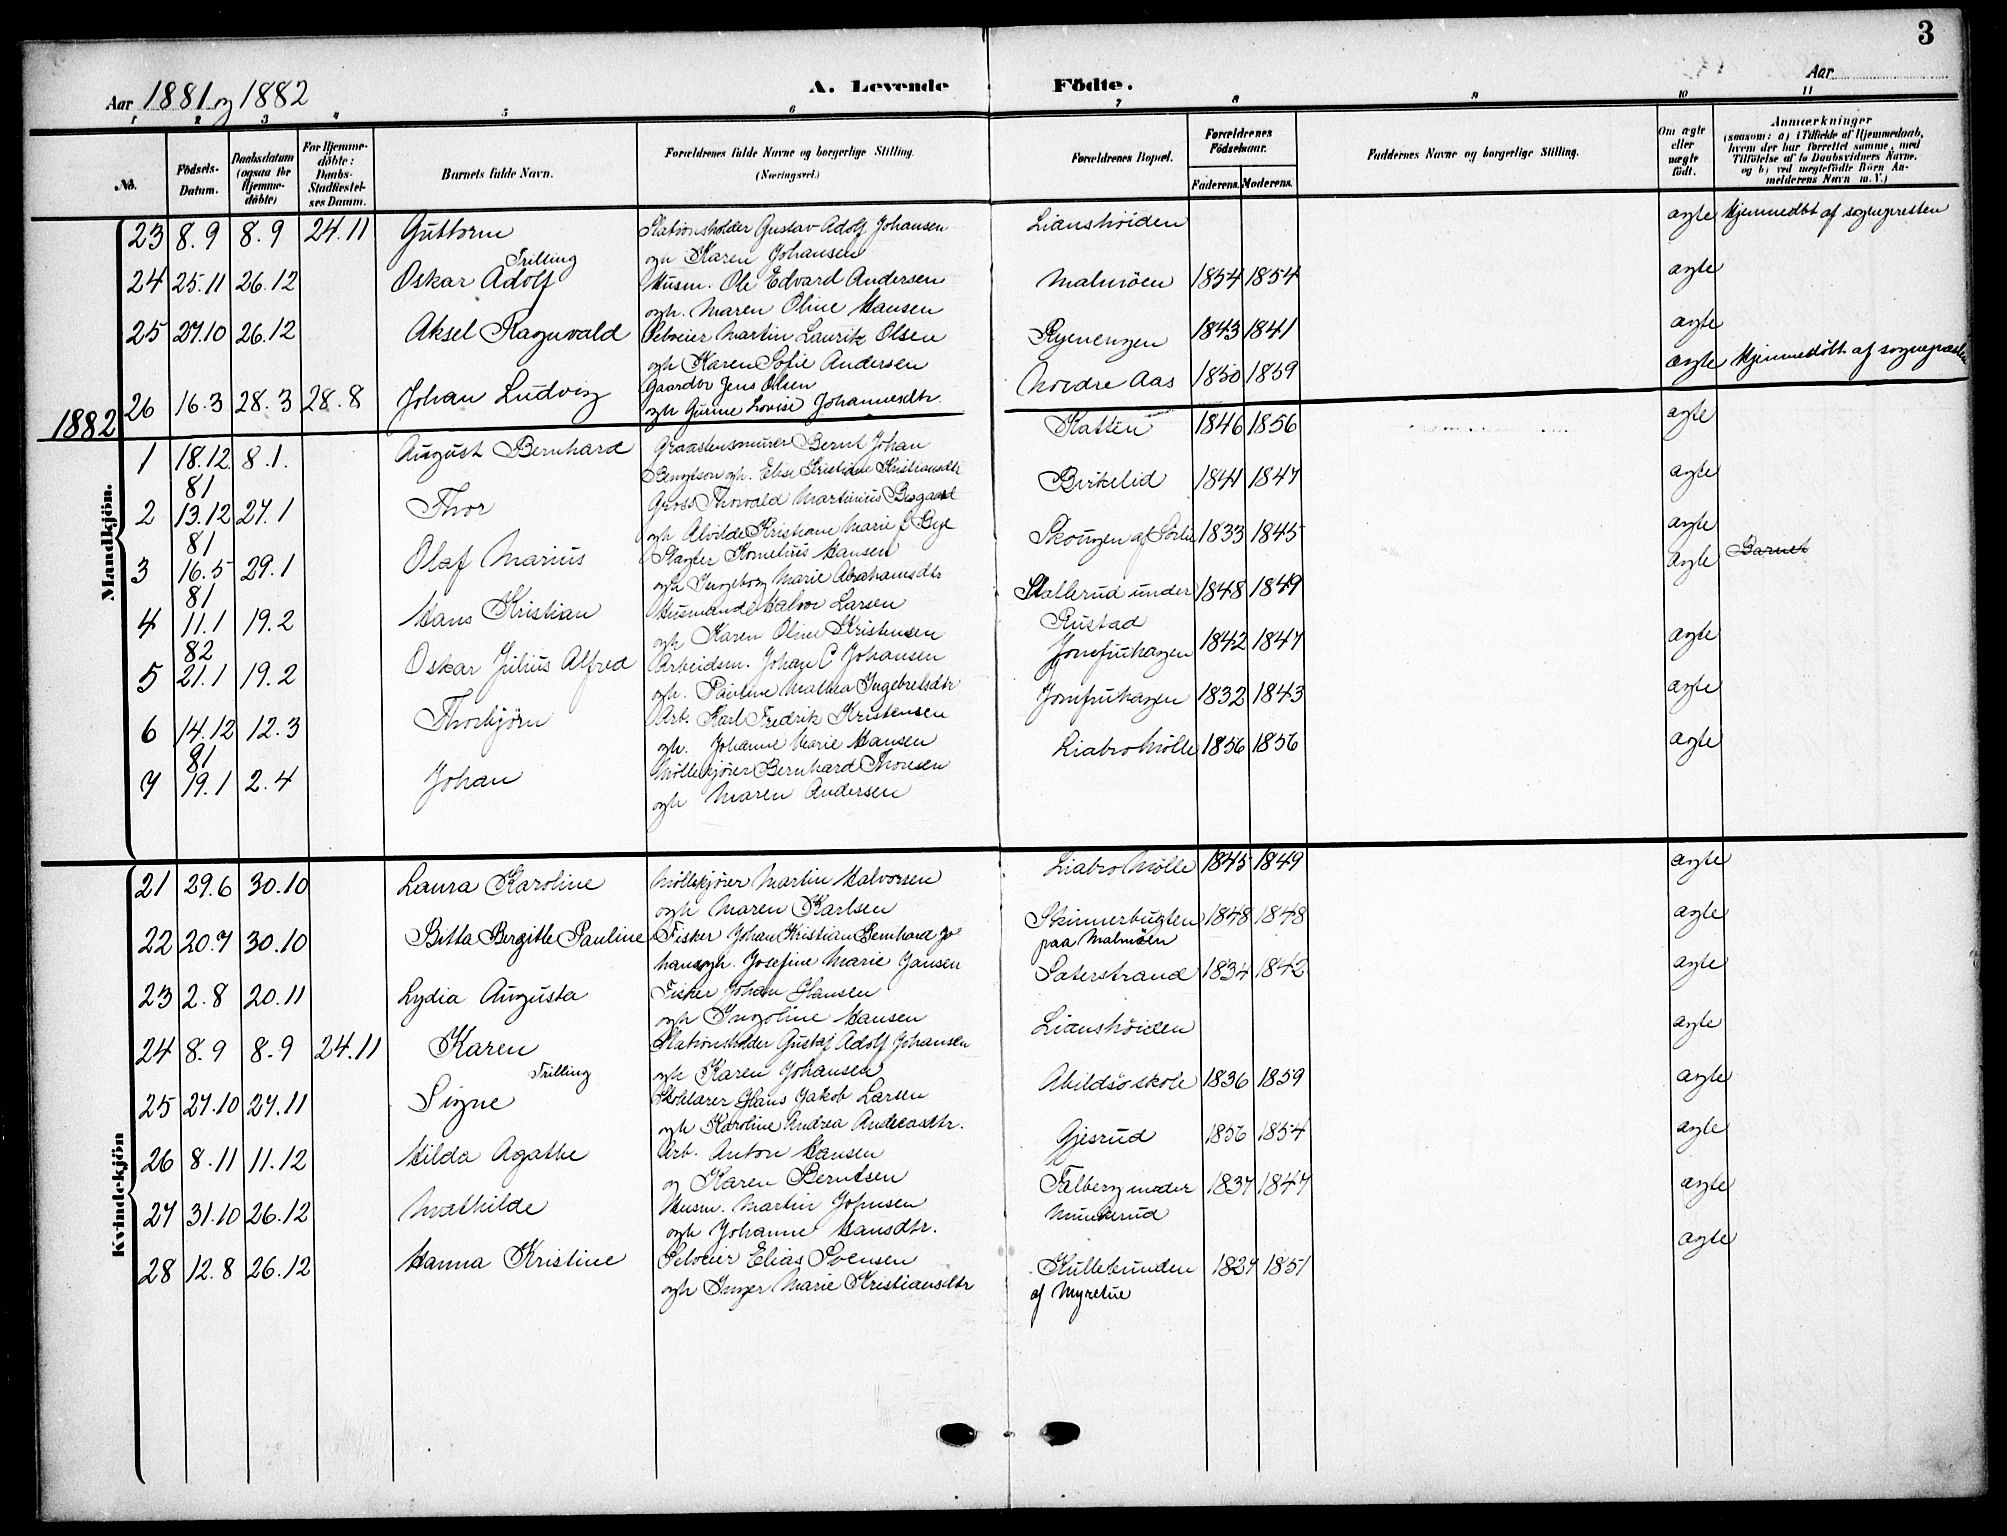 3
Aar 1881 og 1882 A. Levende Födte. Aar
1 2 3 4 5 6 7 8 9 10 11
No. Födsels-Datum. Daabsdatum (ogsaa for Hjemme-döbte) For Hjemme-döbte: Daabs-Stadfæstelses Datum. Barnets fulde Navn. Forældrenes fulde Navne og borgerlige Stilling. (Næringsvei.) Forældrenes Bopæl. Forældrenes Födselsaar. Faderens. Moderens. Faddernes Navne og borgerlige Stilling. Om ægte eller uægte födt. Anmærkninger (saasom: a) i Tilfælde af Hjemmedaab, hvem der har forrettet samme, med Tilföielse af to Daabsvidners Navne. og b) ved uægtefödte Börn Anmelderens Navn m. V.)
Mandkjön.
23 8.9 8.9 24.11 Guttorm Stationsholder Gustav Adolf Johansen Lianshöiden ægte Hjemmedbt af sognepresten
Trilling ogh Karen Johansen
24 25.11 26.12 Oskar Adolf Husm. Ole Edvard Andersen Malmöen 1854 1854 ægte
ogh. Maren Oline Hansen
25 27.10 26.12 Aksel Ragnvald Selveier Martin Laurik Olsen Ryenengen 1843 1841 ægte
ogh Karen Sofie Andersen
26 16.3 28.3 28.8 Johan Ludvig Gaardbr Jens Olsen Nordre Aas 1850 1859 ægte Hjemmedöbt af sognepræsten
ogh Gunine Lovise Johannesdtr.
1882
1 18.12 8.1. August Bernhard Graastensmurer Bernt Johan Katten 1846 1856 ægte
81 Bengtson ogh. Elise Kristiane Kristiansdtr
2 13.12 27.1 Thor Gross. Thorvald Martinius Bisgaard Birkelid 1841 1847 ægte
81 ogh Alvilde Kristiane Marie f Bye
3 16.5 29.1 Olaf Marius Slagter Kornelius Hansen Skougen af 1833 1845 ægte
81 ogh Ingeborg Marie Abrahamsdtr
4 11.1 19.2 Hans Kristian Husmand Halvor Larsen Stallerud under 1848 1849 ægte Barnet
82 ogh Karen Oline Kristensen Rustad
5 21.1 19.2 Oskar Julius Alfred Arbeidsm. Johan C Johansen Jomfruhagen 1842 1847 ægte
ogh. Pauline Mathea Ingebretsdtr
6 14.12 12.3 Thorbjörn Arb. Karl Fredrik Kristensen Jomfruhagen 1832 1843 ægte
81 ogh. Johanne Marie Hansen
7 19.1 2.4 Johan Möllekjörer Bernhard Thoresen Liabro Mölle 1856 1856 ægte
ogh Maren Andersen
Kvindekjön
21 29.6 30.10 Laura Karoline Möllekjörer Martin Halvorsen Liabro Mölle 1845 1849 ægte
ogh Maren Karlsen
22 20.7 30.10 Bitta Bergitte Pauline Fisker Johan Kristian Bernhard Jo Skinnerbugten 1848 1848 ægte
hans ogh. Josefine Marie Jansen paa Malmöen
23 2.8 20.11 Lydia Augusta Fisker Johan Hansen Saterstrand 1834 1842 ægte
ogh Ingoline Hansen
24 8.9 8.9 24.11 Karen Stationsholder Gustaf Adolf Johansen Lianshöiden ægte
Trilling ogh Karen Johansen
25 27.10 27.11 Signe Skolelærer Hans Jakob Larsen Abildsö skole 1836 1859 ægte
ogh Karoline Andrea Andreasdtr.
26 8.11 11.12 Hilda Agathe Arb. Anton Hansen Gjesrud 1856 1854 ægte
og Karen Berntsen
27 31.10 26.12 Mathilde Husm. Martin Johnsen Talberg under 1837 1847 ægte
ogh Johanne Hansdtr. Munkerud
28 12.8 26.12 Hanna Kristine Selveier Elias Svensen Kullebunden 1827 1851 ægte
ogh Inger Marie Kristiansdtr af Myretue